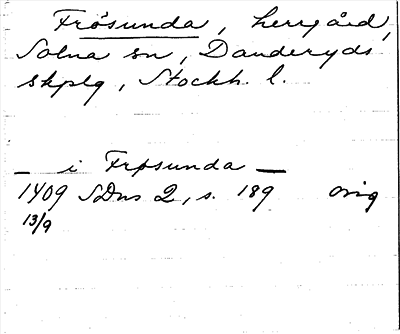 Frösunda, herrgård,
Solna sn, Danderyds
skplg, Stockh. l.
– i Frøsunda –
1409 SDns 2, s. 189 orig
13/9